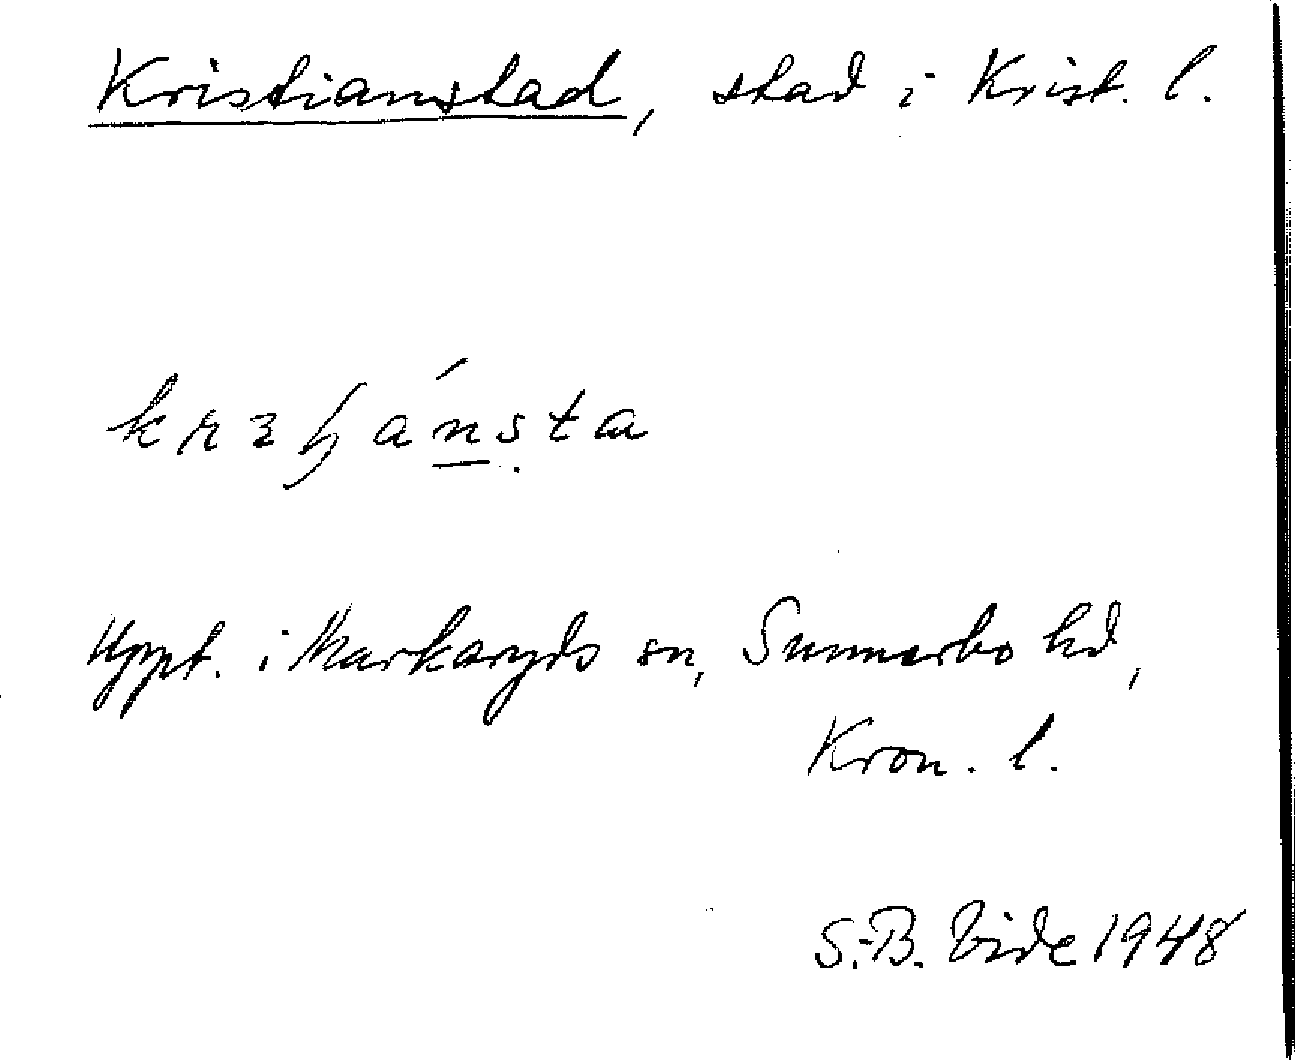 Kristianstad, stad i Krist. l.
krɜɧánsta
Uppt. i Markaryds sn, Sunnerbo hd,
Kron. l.
S.-B. Vide 1948